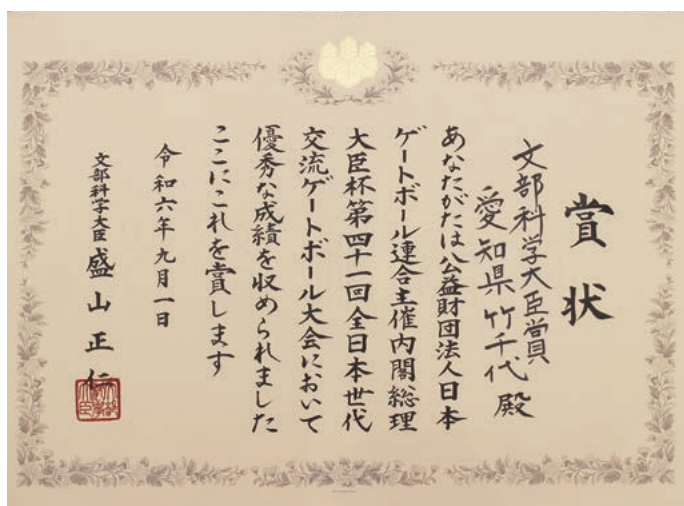 賞状
文部科学大臣賞
愛知県竹千代 殿
あなたがたは公益財団法人日本
ゲートボール連合主催内閣総理
大臣杯第四十一回全日本世代
交流ゲートボール大会において
優秀な成績を収められました
ここにこれを賞します
令和六年九月一日
文部科学大臣 盛山正仁